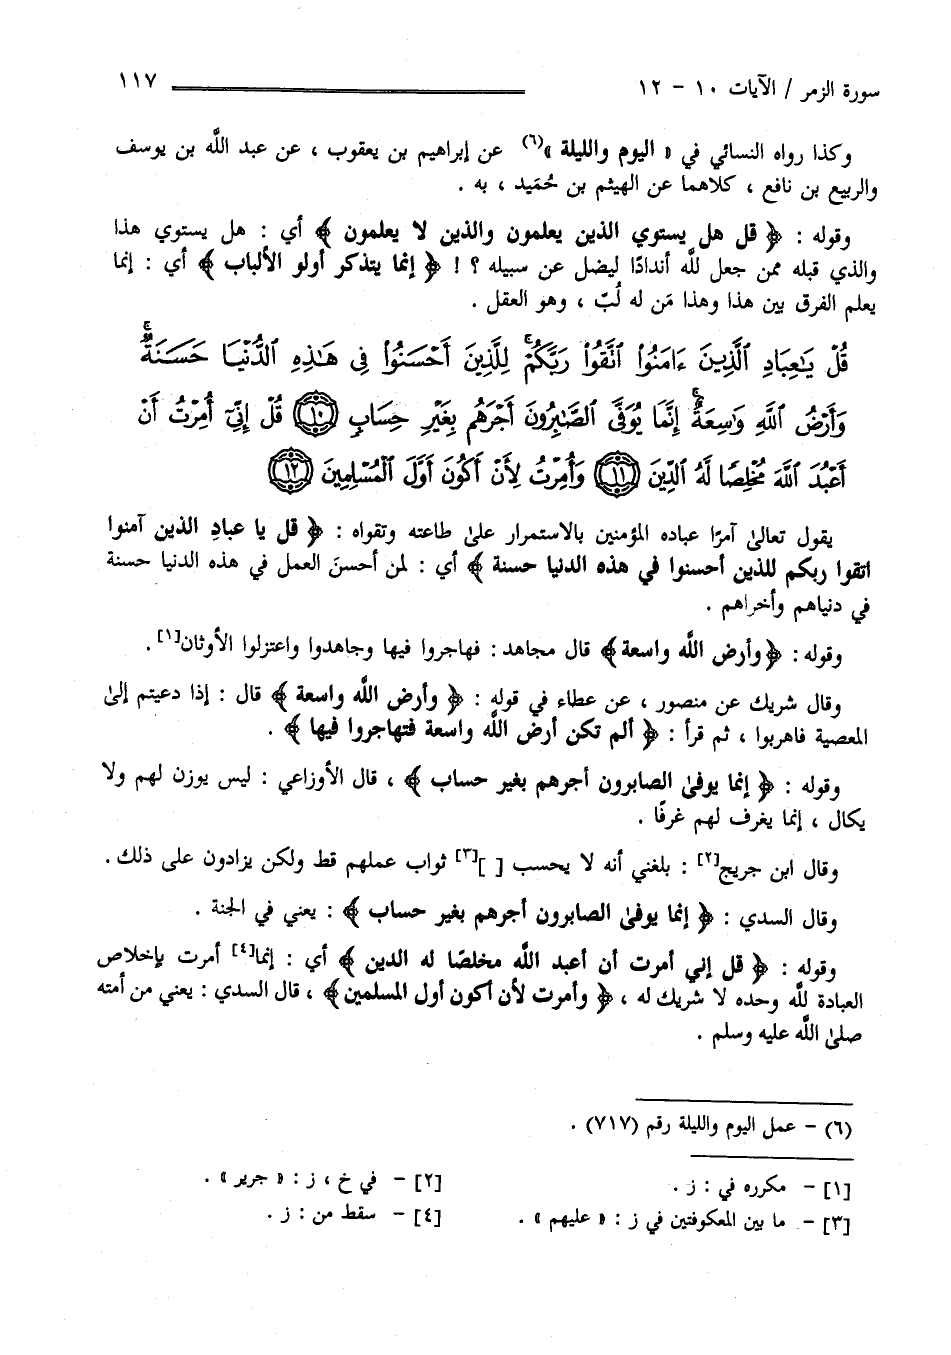 سورة الزمر / الآيات ١٠ - ١٢ ١١٧
وكذا رواه النسائي في « اليوم والليلة »(٦) عن إبراهيم بن يعقوب ، عن عبد اللَّه بن يوسف
والربيع بن نافع ، كلاهما عن الهيثم بن حُمَيد ، به .
وقوله : ﴿ قل هل يستوي الذين يعلمون والذين لا يعلمون ﴾ أي : هل يستوي هذا
والذي قبله ممن جعل للَّه أندادًا ليضل عن سبيله ؟ ! ﴿ إنما يتذكر أولو الألباب ﴾ أي : إنما
يعلم الفرق بين هذا وهذا مَن له لُبّ ، وهو العقل .
قُلْ يَٰعِبَادِ ٱلَّذِينَ ءَامَنُوا۟ ٱتَّقُوا۟ رَبَّكُمْ ۚ لِلَّذِينَ أَحْسَنُوا۟ فِى هَٰذِهِ ٱلدُّنْيَا حَسَنَةٌ ۗ
وَأَرْضُ ٱللَّهِ وَٰسِعَةٌ ۗ إِنَّمَا يُوَفَّى ٱلصَّٰبِرُونَ أَجْرَهُم بِغَيْرِ حِسَابٍ ١٠ قُلْ إِنِّىٓ أُمِرْتُ أَنْ
أَعْبُدَ ٱللَّهَ مُخْلِصًا لَّهُ ٱلدِّينَ ١١ وَأُمِرْتُ لِأَنْ أَكُونَ أَوَّلَ ٱلْمُسْلِمِينَ ١٢
يقول تعالىٰ آمرًا عباده المؤمنين بالاستمرار علىٰ طاعته وتقواه : ﴿ قل يا عبادِ الذين آمنوا
اتقوا ربكم للذين أحسنوا في هذه الدنيا حسنة ﴾ أي : لمن أحسنَ العمل في هذه الدنيا حسنة
في دنياهم وأخراهم .
وقوله : ﴿وأرض اللَّه واسعة﴾ قال مجاهد : فهاجروا فيها وجاهدوا واعتزلوا الأوثان[١] .
وقال شريك عن منصور ، عن عطاء في قوله : ﴿ وأرض اللَّه واسعة ﴾ قال : إذا دعيتم إلىٰ
المعصية فاهربوا ، ثم قرأ : ﴿ ألم تكن أرض اللَّه واسعة فتهاجروا فيها ﴾ .
وقوله : ﴿ إنما يوفىٰ الصابرون أجرهم بغير حساب ﴾ ، قال الأوزاعي : ليس يوزن لهم ولا
يكال ، إنما يغرف لهم غرفًا .
وقال ابن جريج[٢] : بلغني أنه لا يحسب [ ][٣] ثواب عملهم قط ولكن يزادون على ذلك .
وقال السدي : ﴿ إنما يوفىٰ الصابرون أجرهم بغير حساب ﴾ : يعني في الجنة .
وقوله : ﴿ قل إني أمرت أن أعبد اللَّه مخلصًا له الدين ﴾ أي : إنما[٤] أمرت بإخلاص
العبادة للَّه وحده لا شريك له ، ﴿ وأمرت لأن أكون أول المسلمين﴾ ، قال السدي : يعني من أمته
صلىٰ اللَّه عليه وسلم .
(٦) - عمل اليوم والليلة رقم (٧١٧) .
[١] - مكرره في : ز . [٢] - في خ ، ز : « جرير » .
[٣] - ما بين المعكوفتين في ز : « عليهم » . [٤] - سقط من : ز .